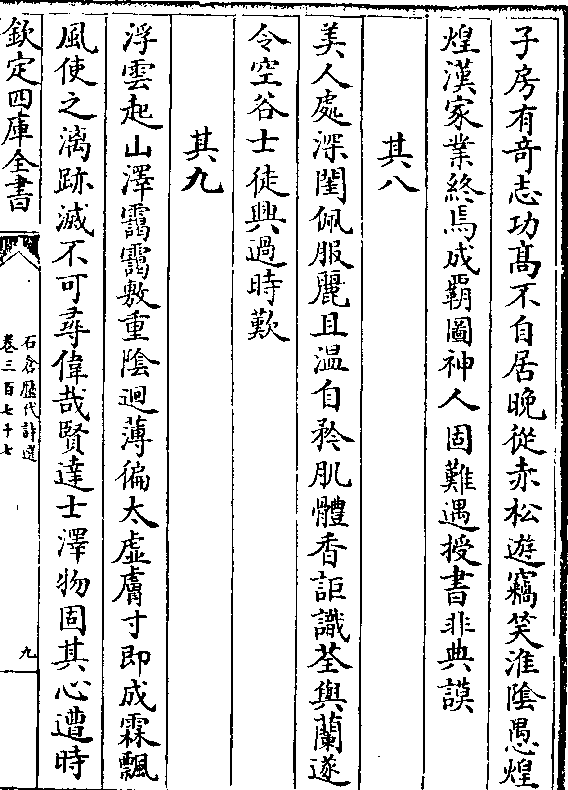 子房有竒志功髙不自居晚從赤松遊竊笑淮隂愚煌
煌漢家業終焉成覇圖神人固難遇授書非典謨
其八
美人處深閨佩服麗且温自矜肌體香詎識荃與蘭遂
令空谷士徒興過時歎
其九
浮雲起山澤靄靄敷重隂迴薄徧太虚膚寸即成霖飄
風使之漓跡滅不可尋偉哉賢達士澤物固其心遭時
欽定四庫全書
石倉歴代詩選
卷三百七十七
九